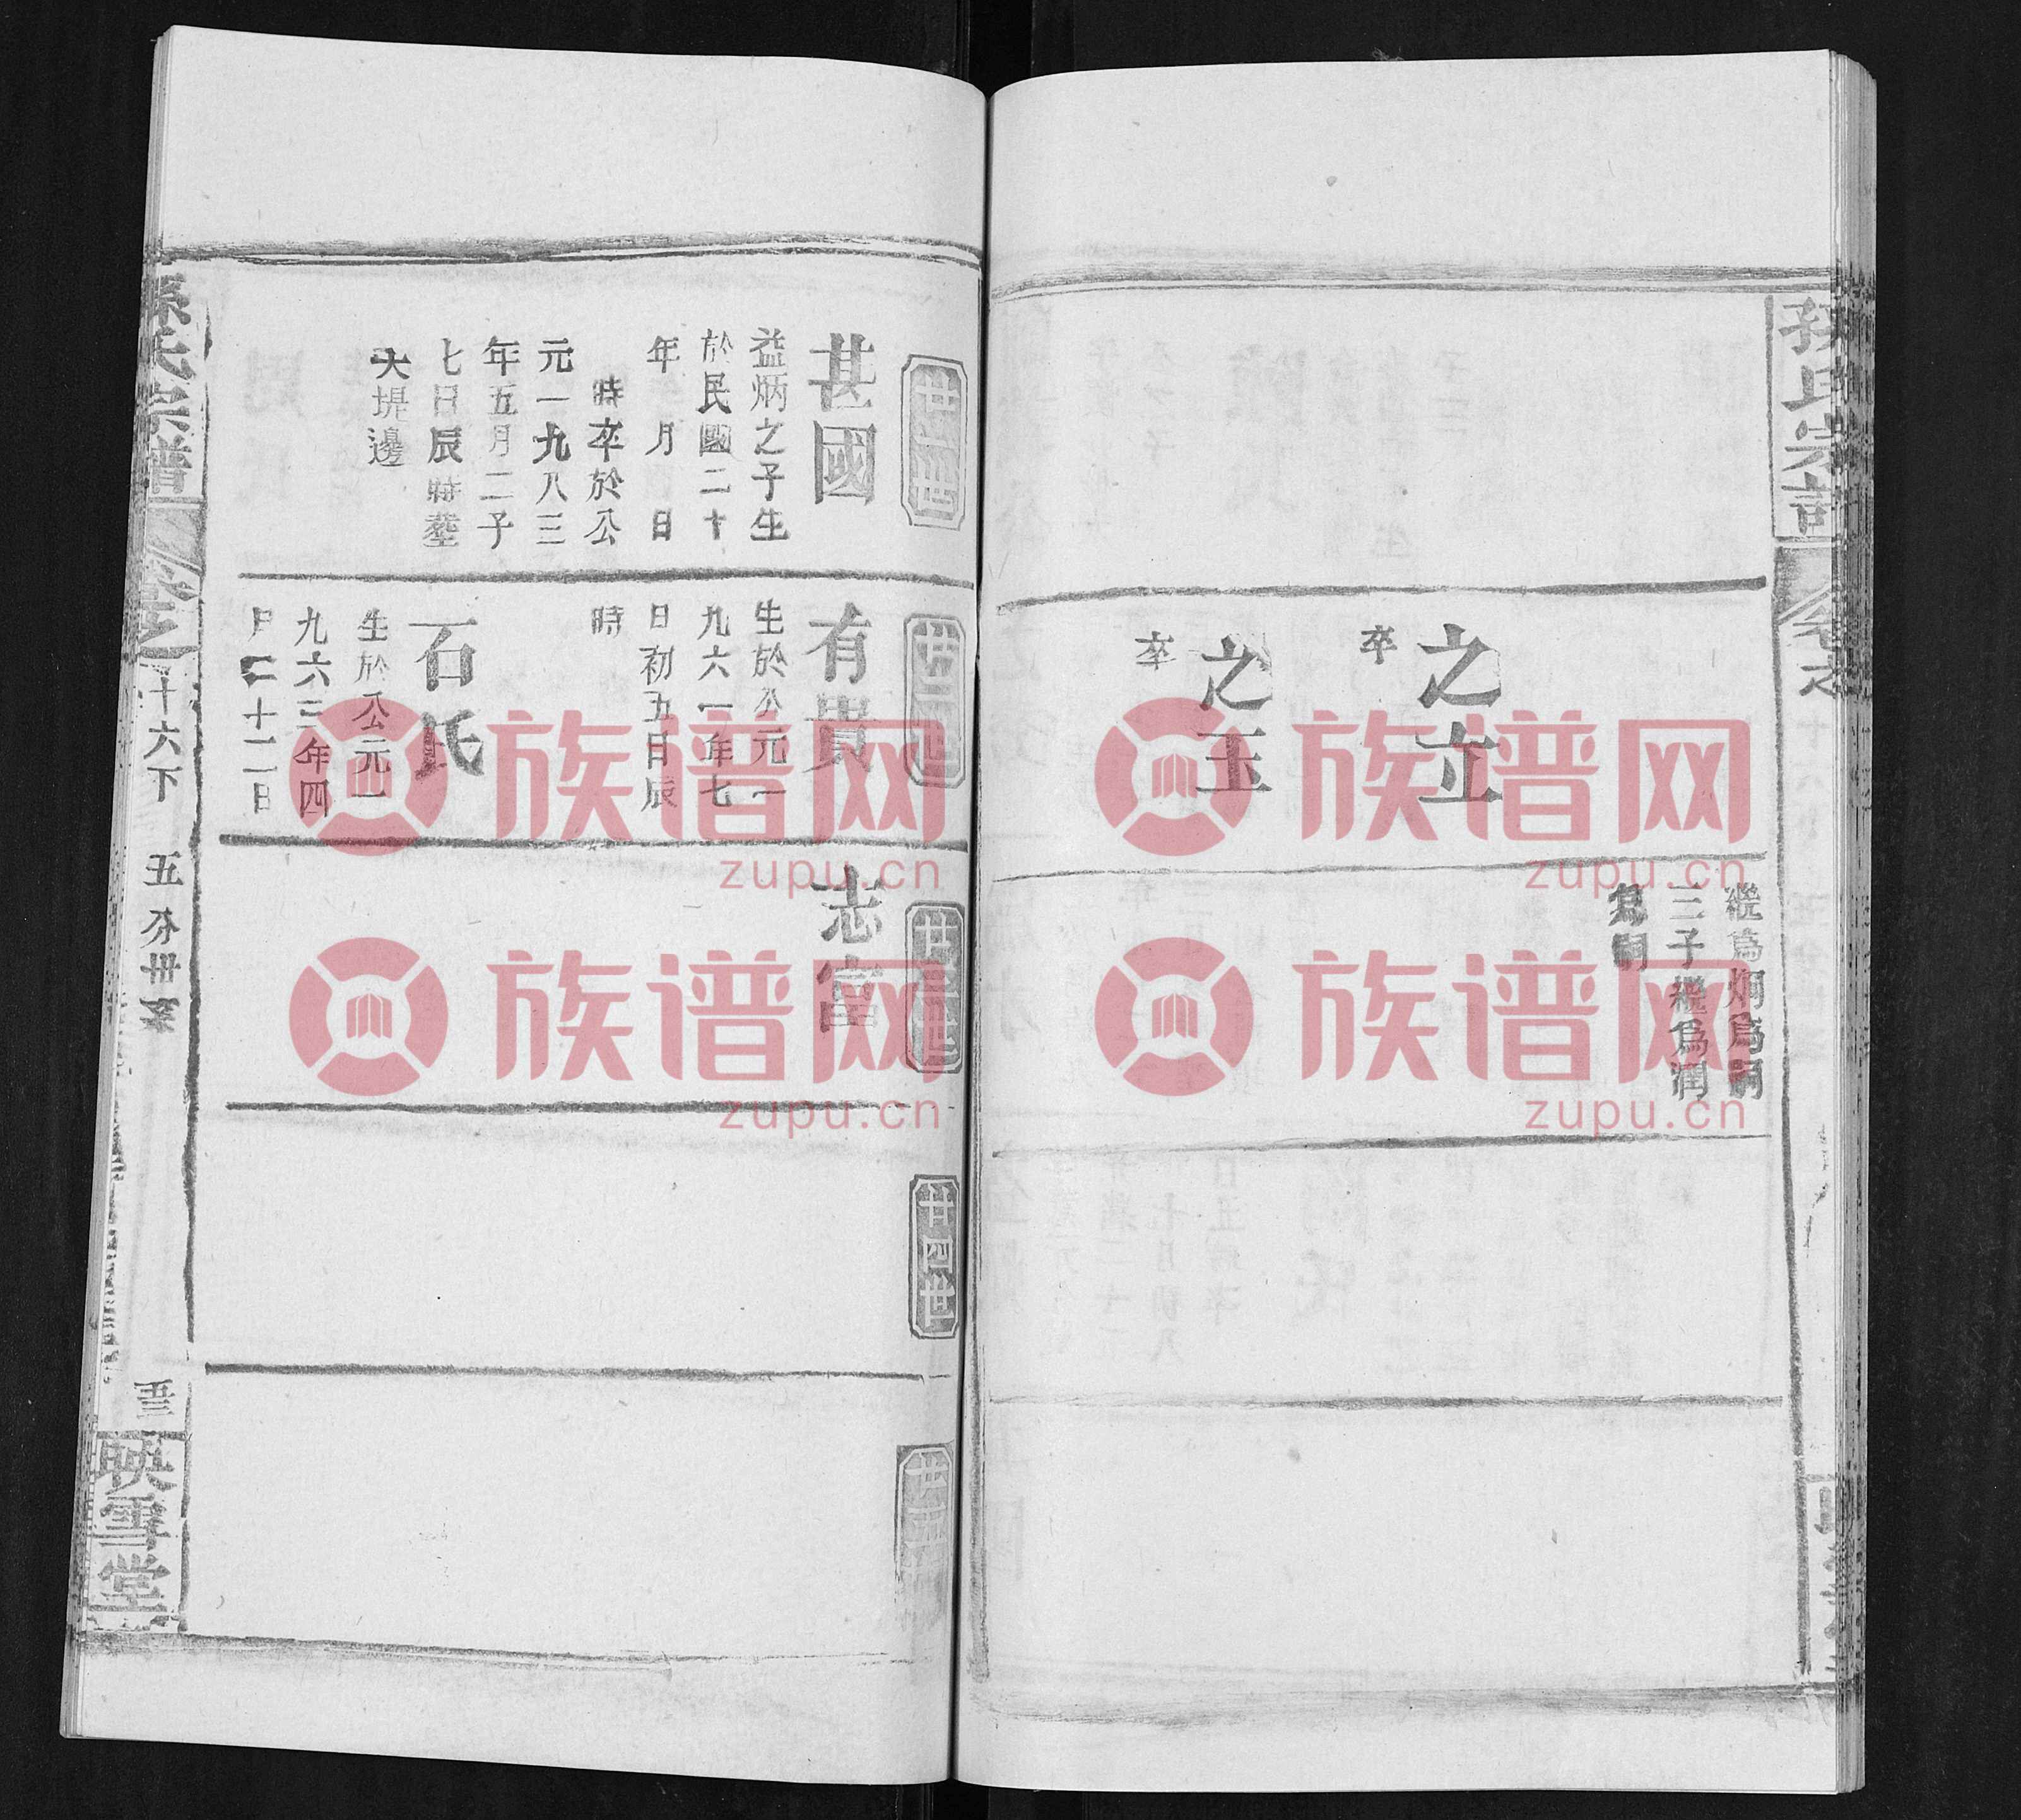 孫氏宗譜
之立
卒
之玉
卒
繼爲炯爲嗣
三子繼爲潤
爲嗣
廿一世
甚國
益炳之子生
於民國二十
年 月 日
時卒於公
元一九八三
年五月二子
七日辰時葬
大堤邊
廿二世
有貴
生於公元一
九六一年七
日初五日辰
時
石氏
生於公元一
九六三年四
月二十二日
廿三世
志富
廿四世
廿五世
孫氏宗譜
卷之
十六下
五分卅系
映雪堂
族谱网
zupu.cn
族谱网
zupu.cn
族谱网
zupu.cn
族谱网
zupu.cn